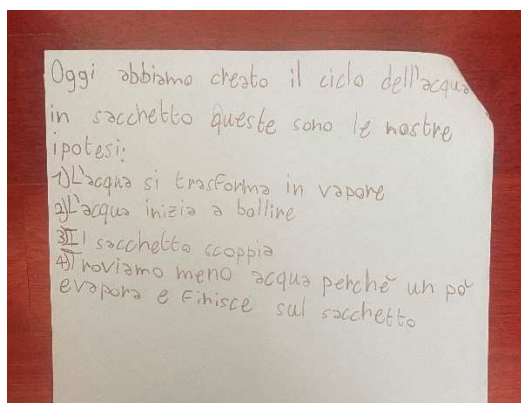 Oggi abbiamo creato il ciclo dell'acqua
in sacchetto queste sono le nostre
ipotesi:
1) L'acqua si trasforma in vapore
2) L'acqua inizia a bollire
3) Il sacchetto scoppia
4) Troviamo meno acqua perchè un pò
evapora e finisce sul sacchetto